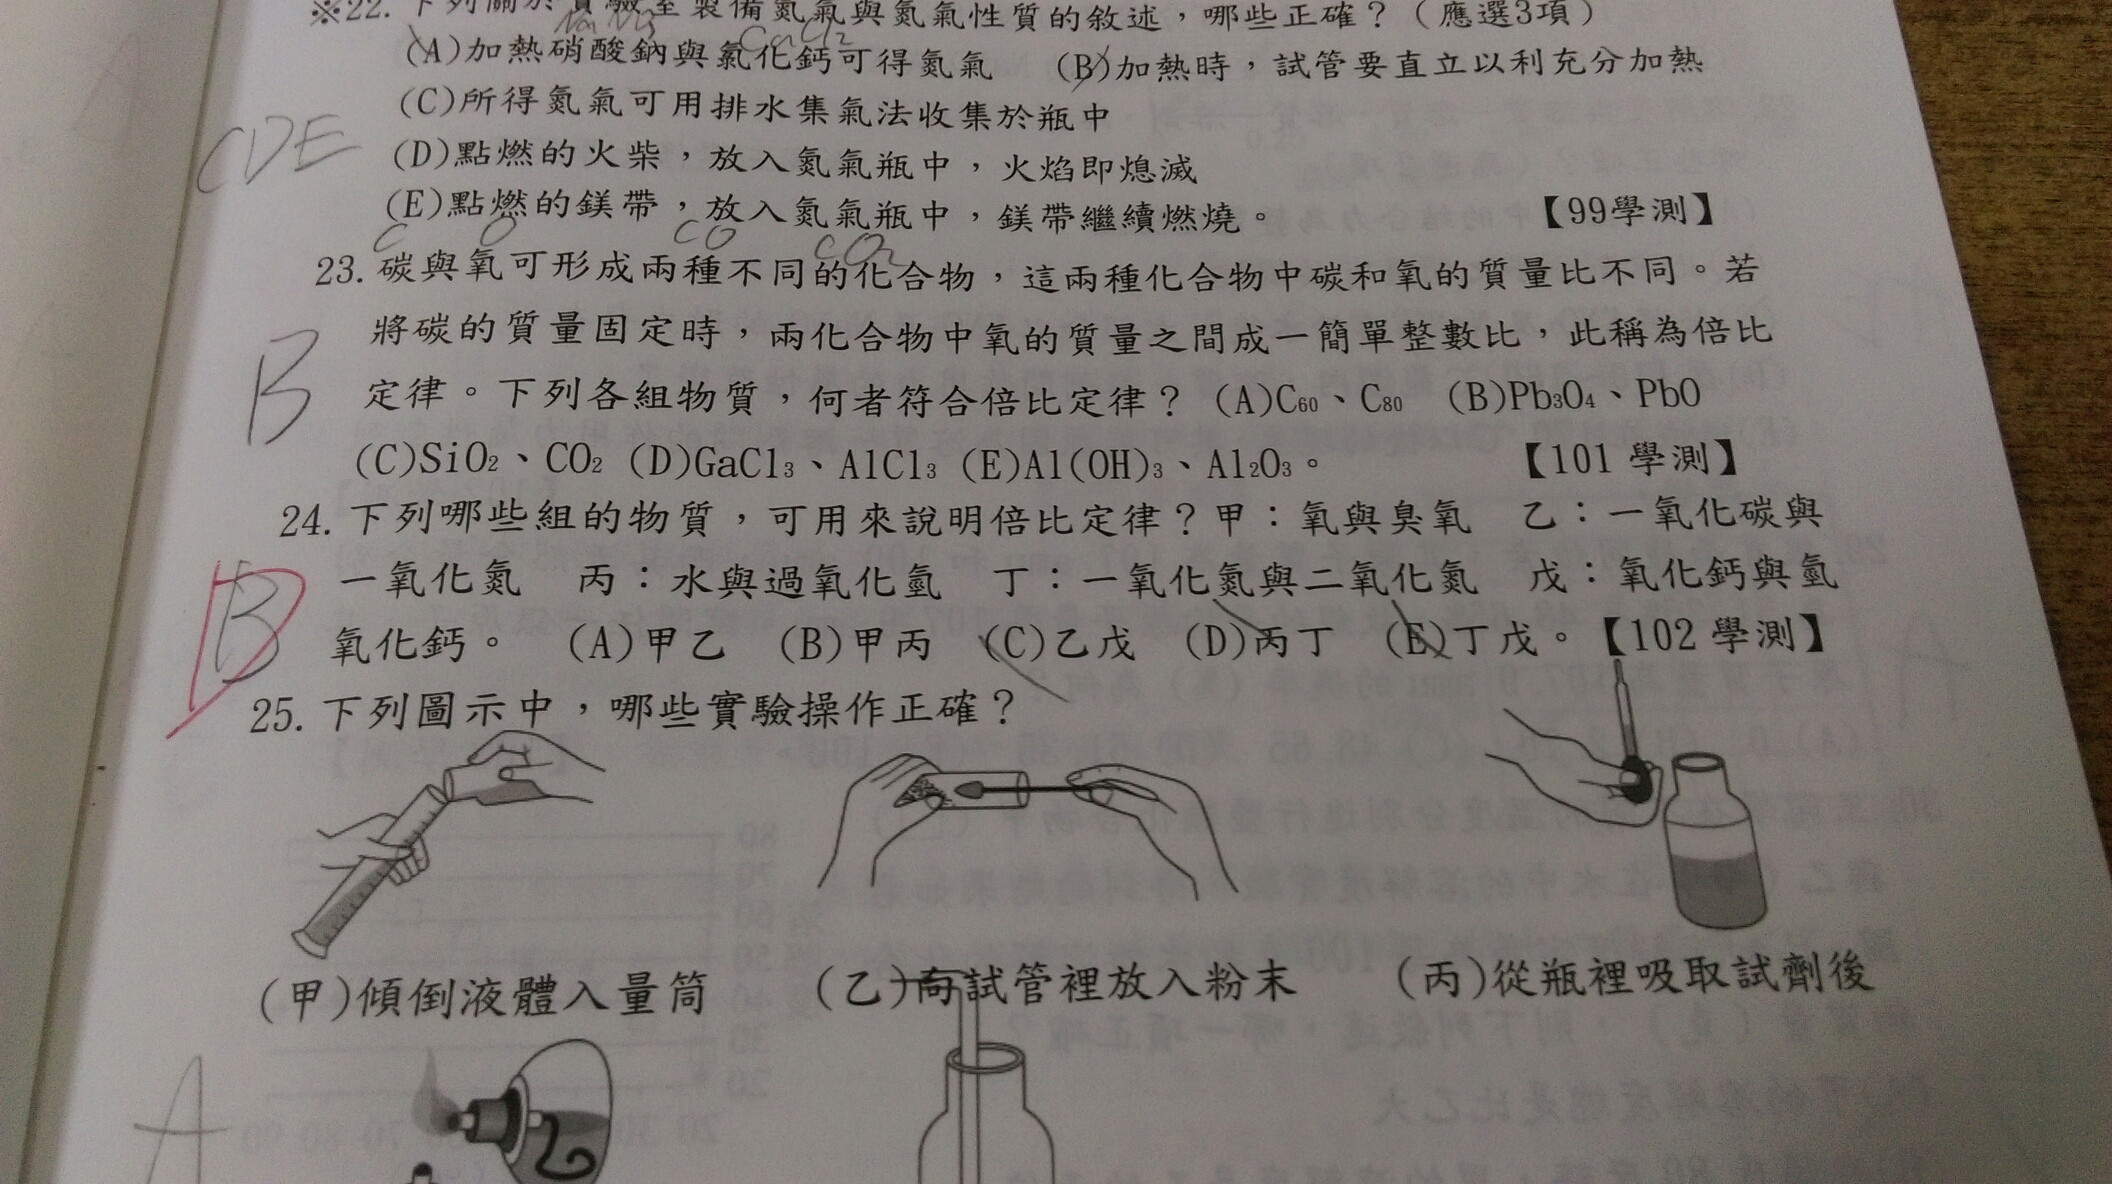 ※22.下列關於實驗室裝備氮氣與氮氣性質的敘述，哪些正確？（應選3項）
NaNO3 CaCl2
(A)加熱硝酸鈉與氯化鈣可得氮氣 (B)加熱時，試管要直立以利充分加熱
(C)所得氮氣可用排水集氣法收集於瓶中
CDE
(D)點燃的火柴，放入氮氣瓶中，火焰即熄滅
(E)點燃的鎂帶，放入氮氣瓶中，鎂帶繼續燃燒。 【99學測】
C O CO CO2
23.碳與氧可形成兩種不同的化合物，這兩種化合物中碳和氧的質量比不同。若
將碳的質量固定時，兩化合物中氧的質量之間成一簡單整數比，此稱為倍比
B
定律。下列各組物質，何者符合倍比定律？ (A)C60、C80 (B)Pb3O4、PbO
(C)SiO2、CO2 (D)GaCl3、AlCl3 (E)Al(OH)3、Al2O3。 【101 學測】
24.下列哪些組的物質，可用來說明倍比定律？甲：氧與臭氧 乙：一氧化碳與
一氧化氮 丙：水與過氧化氫 丁：一氧化氮與二氧化氮 戊：氧化鈣與氫
B D
氧化鈣。 (A)甲乙 (B)甲丙 (C)乙戊 (D)丙丁 (E)丁戊。【102 學測】
25.下列圖示中，哪些實驗操作正確？
(甲)傾倒液體入量筒 (乙)向試管裡放入粉末 (丙)從瓶裡吸取試劑後
A